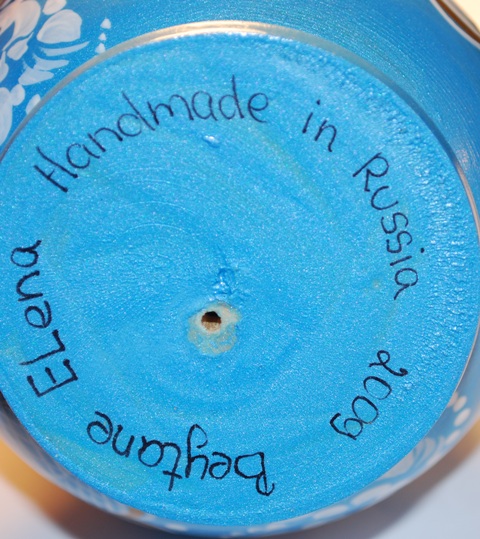 Handmade in Russia
2009
Beytane
Elena